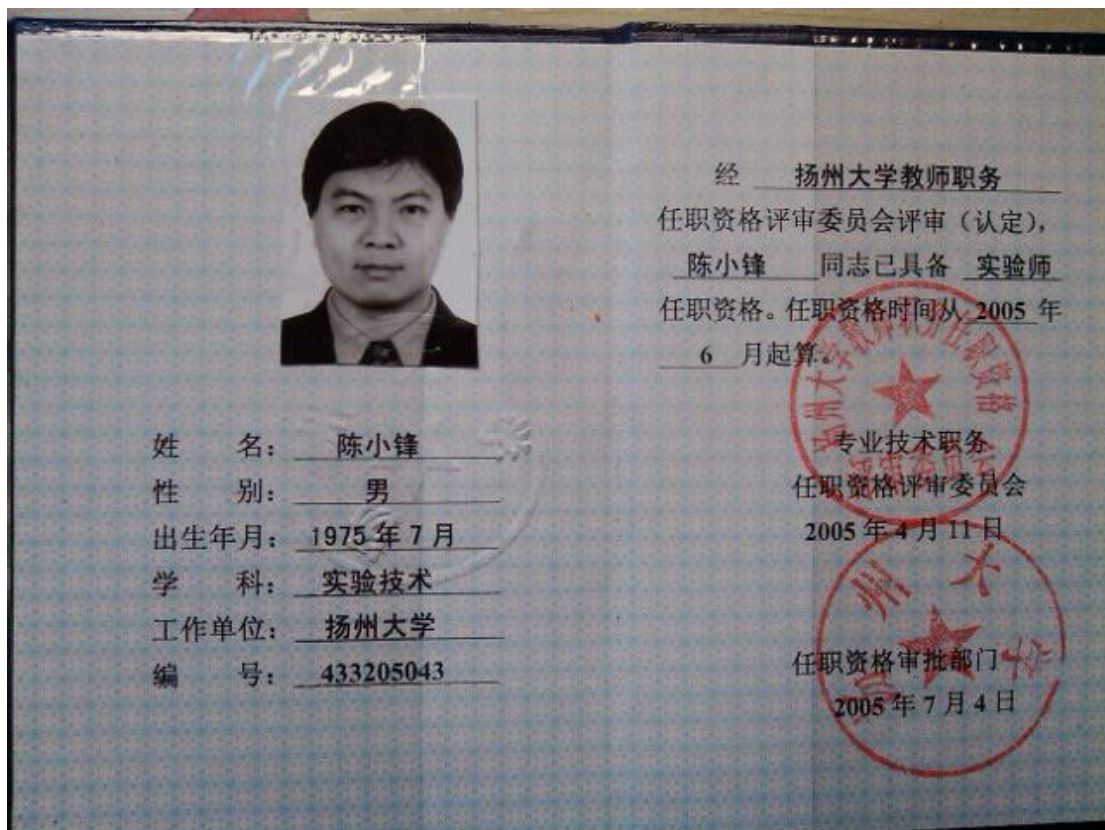 姓 名：陈小锋
性 别：男
出生年月：1975年7月
学 科：实验技术
工作单位：扬州大学
编 号：433205043
经 扬州大学教师职务
任职资格评审委员会评审（认定），
陈小锋 同志已具备 实验师
任职资格。任职资格时间从 2005 年
6 月起算。
扬州大学教师职务任职资格
评审委员会
专业技术职务
任职资格评审委员会
2005年4月11日
扬州大学
任职资格审批部门
2005年7月4日